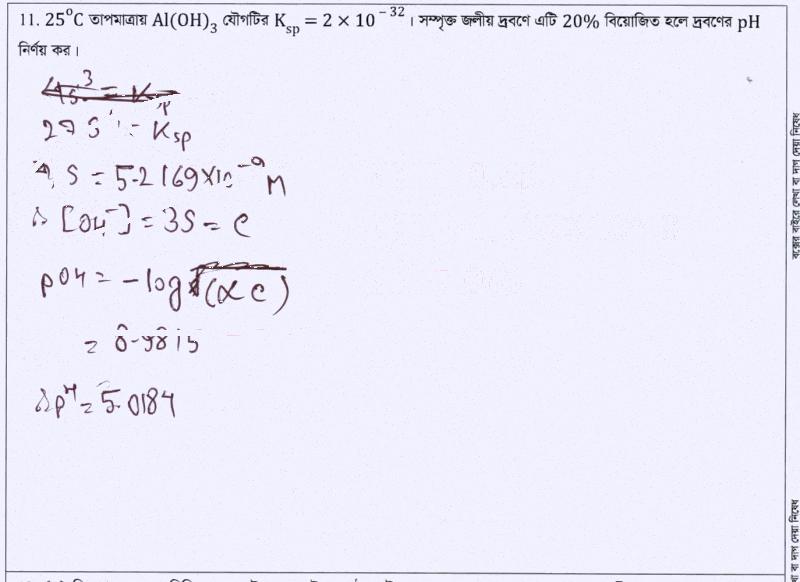 11. 25°C তাপমাত্রায় Al(OH)₃ যৌগটির K_sp = 2 × 10⁻³²। সম্পৃক্ত জলীয় দ্রবণে এটি 20% বিয়োজিত হলে দ্রবণের pH
নির্ণয় কর।
27 S = K_sp
S = 5.2169×10⁻⁹ M
[OH⁻] = 3S = C
pOH = -log (αC)
=
pH = 5.0184
বক্সের বাইরে লেখা বা দাগ দেয়া নিষেধ
বা দাগ দেয়া নিষেধ